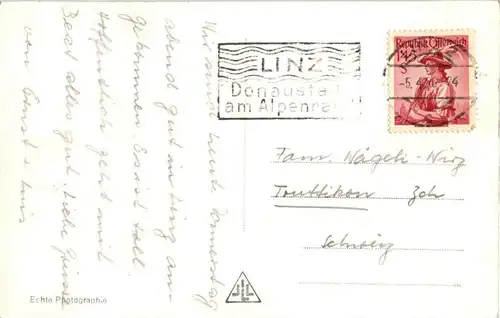 Wir sind heute Donnerstag
abend gut in Linz an-
gekommen. Es ist toll.
Hoffentlich geht mit
Best alles gut. Liebe Grüsse
von Ernst +
LINZ
Donausta
am Alpenra
Republik Österreich
1.45
-5.4
64
Fam. Nägeli-Wirz
Truttikon Zch
Schweiz
Echte Photographie